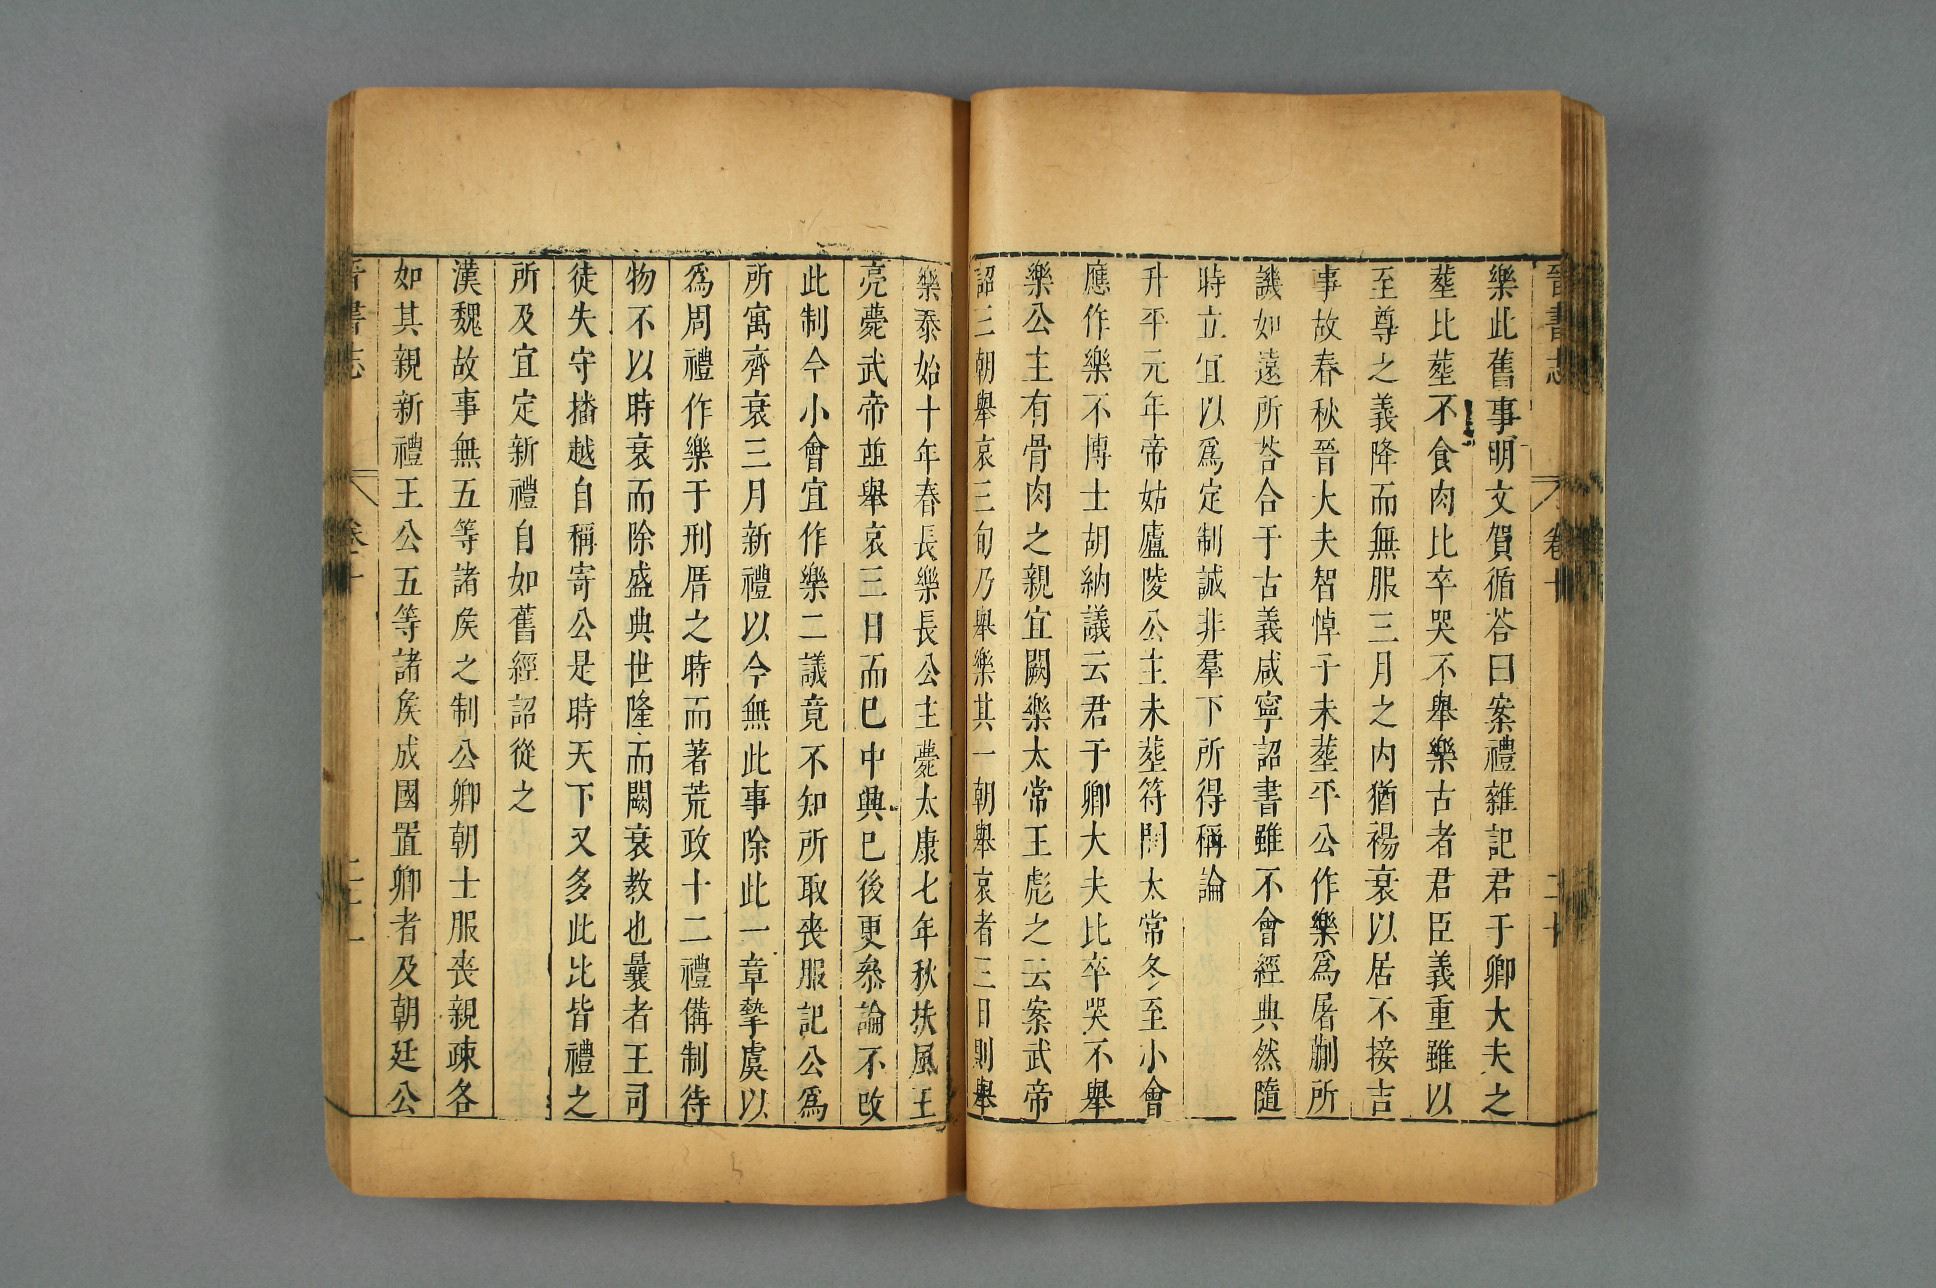 晉書志 卷十 二十
樂此舊事明文賀循荅曰案禮雜記君于卿大夫之
塟比塟不食肉比卒哭不舉樂古者君臣義重雖以
至尊之義降而無服三月之內猶裼衰以居不接吉
事故春秋晉大夫智悼子未塟平公作樂爲屠蒯所
譏如遠所荅合于古義咸寧詔書雖不會經典然隨
時立宜以爲定制誠非羣下所得稱論
升平元年帝姑廬陵公主未塟符問太常冬至小會
應作樂不博士胡納議云君于卿大夫比卒哭不舉
樂公主有骨肉之親宜闕樂太常王彪之云案武帝
詔三朝舉哀三旬乃舉樂其一朝舉哀者三日則舉
樂泰始十年春長樂長公主薨太康七年秋扶風王
亮薨武帝並舉哀三日而已中興已後更叅論不改
此制今小會宜作樂二議竟不知所取喪服記公爲
所寓齊衰三月新禮以今無此事除此一章摯虞以
爲周禮作樂于刑厝之時而著荒政十二禮備制待
物不以時衰而除盛典世隆而闕衰教也曩者王司
徒失守播越自稱寄公是時天下又多此比皆禮之
所及宜定新禮自如舊經詔從之
漢魏故事無五等諸矦之制公卿朝士服喪親疎各
如其親新禮王公五等諸矦成國置卿者及朝廷公
晉書志 卷二十 二十一